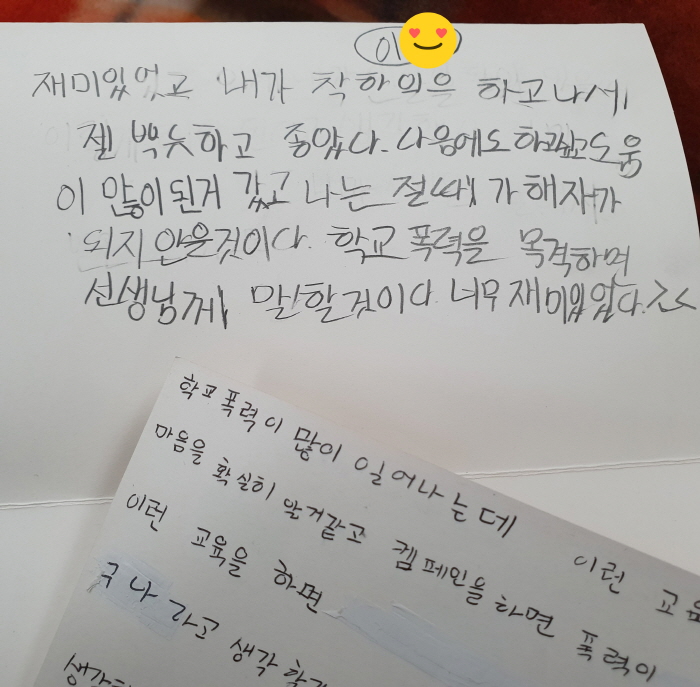 이
재미있었고 내가 착한일을 하고나서
젤 뿌듯하고 좋았다. 다음에도 하고싶고 도움
이 많이된거 같고 나는 절때 가해자가
되지 안을것이다. 학교폭력을 목격하며
선생님께 말할것이다 너무 재미있었다.><
학교폭력이 많이 일어나는데 이런 교육
마음을 확실히 알거같고 캠페인을 하면 폭력이
이런 교육을 하면
구나 라고 생각